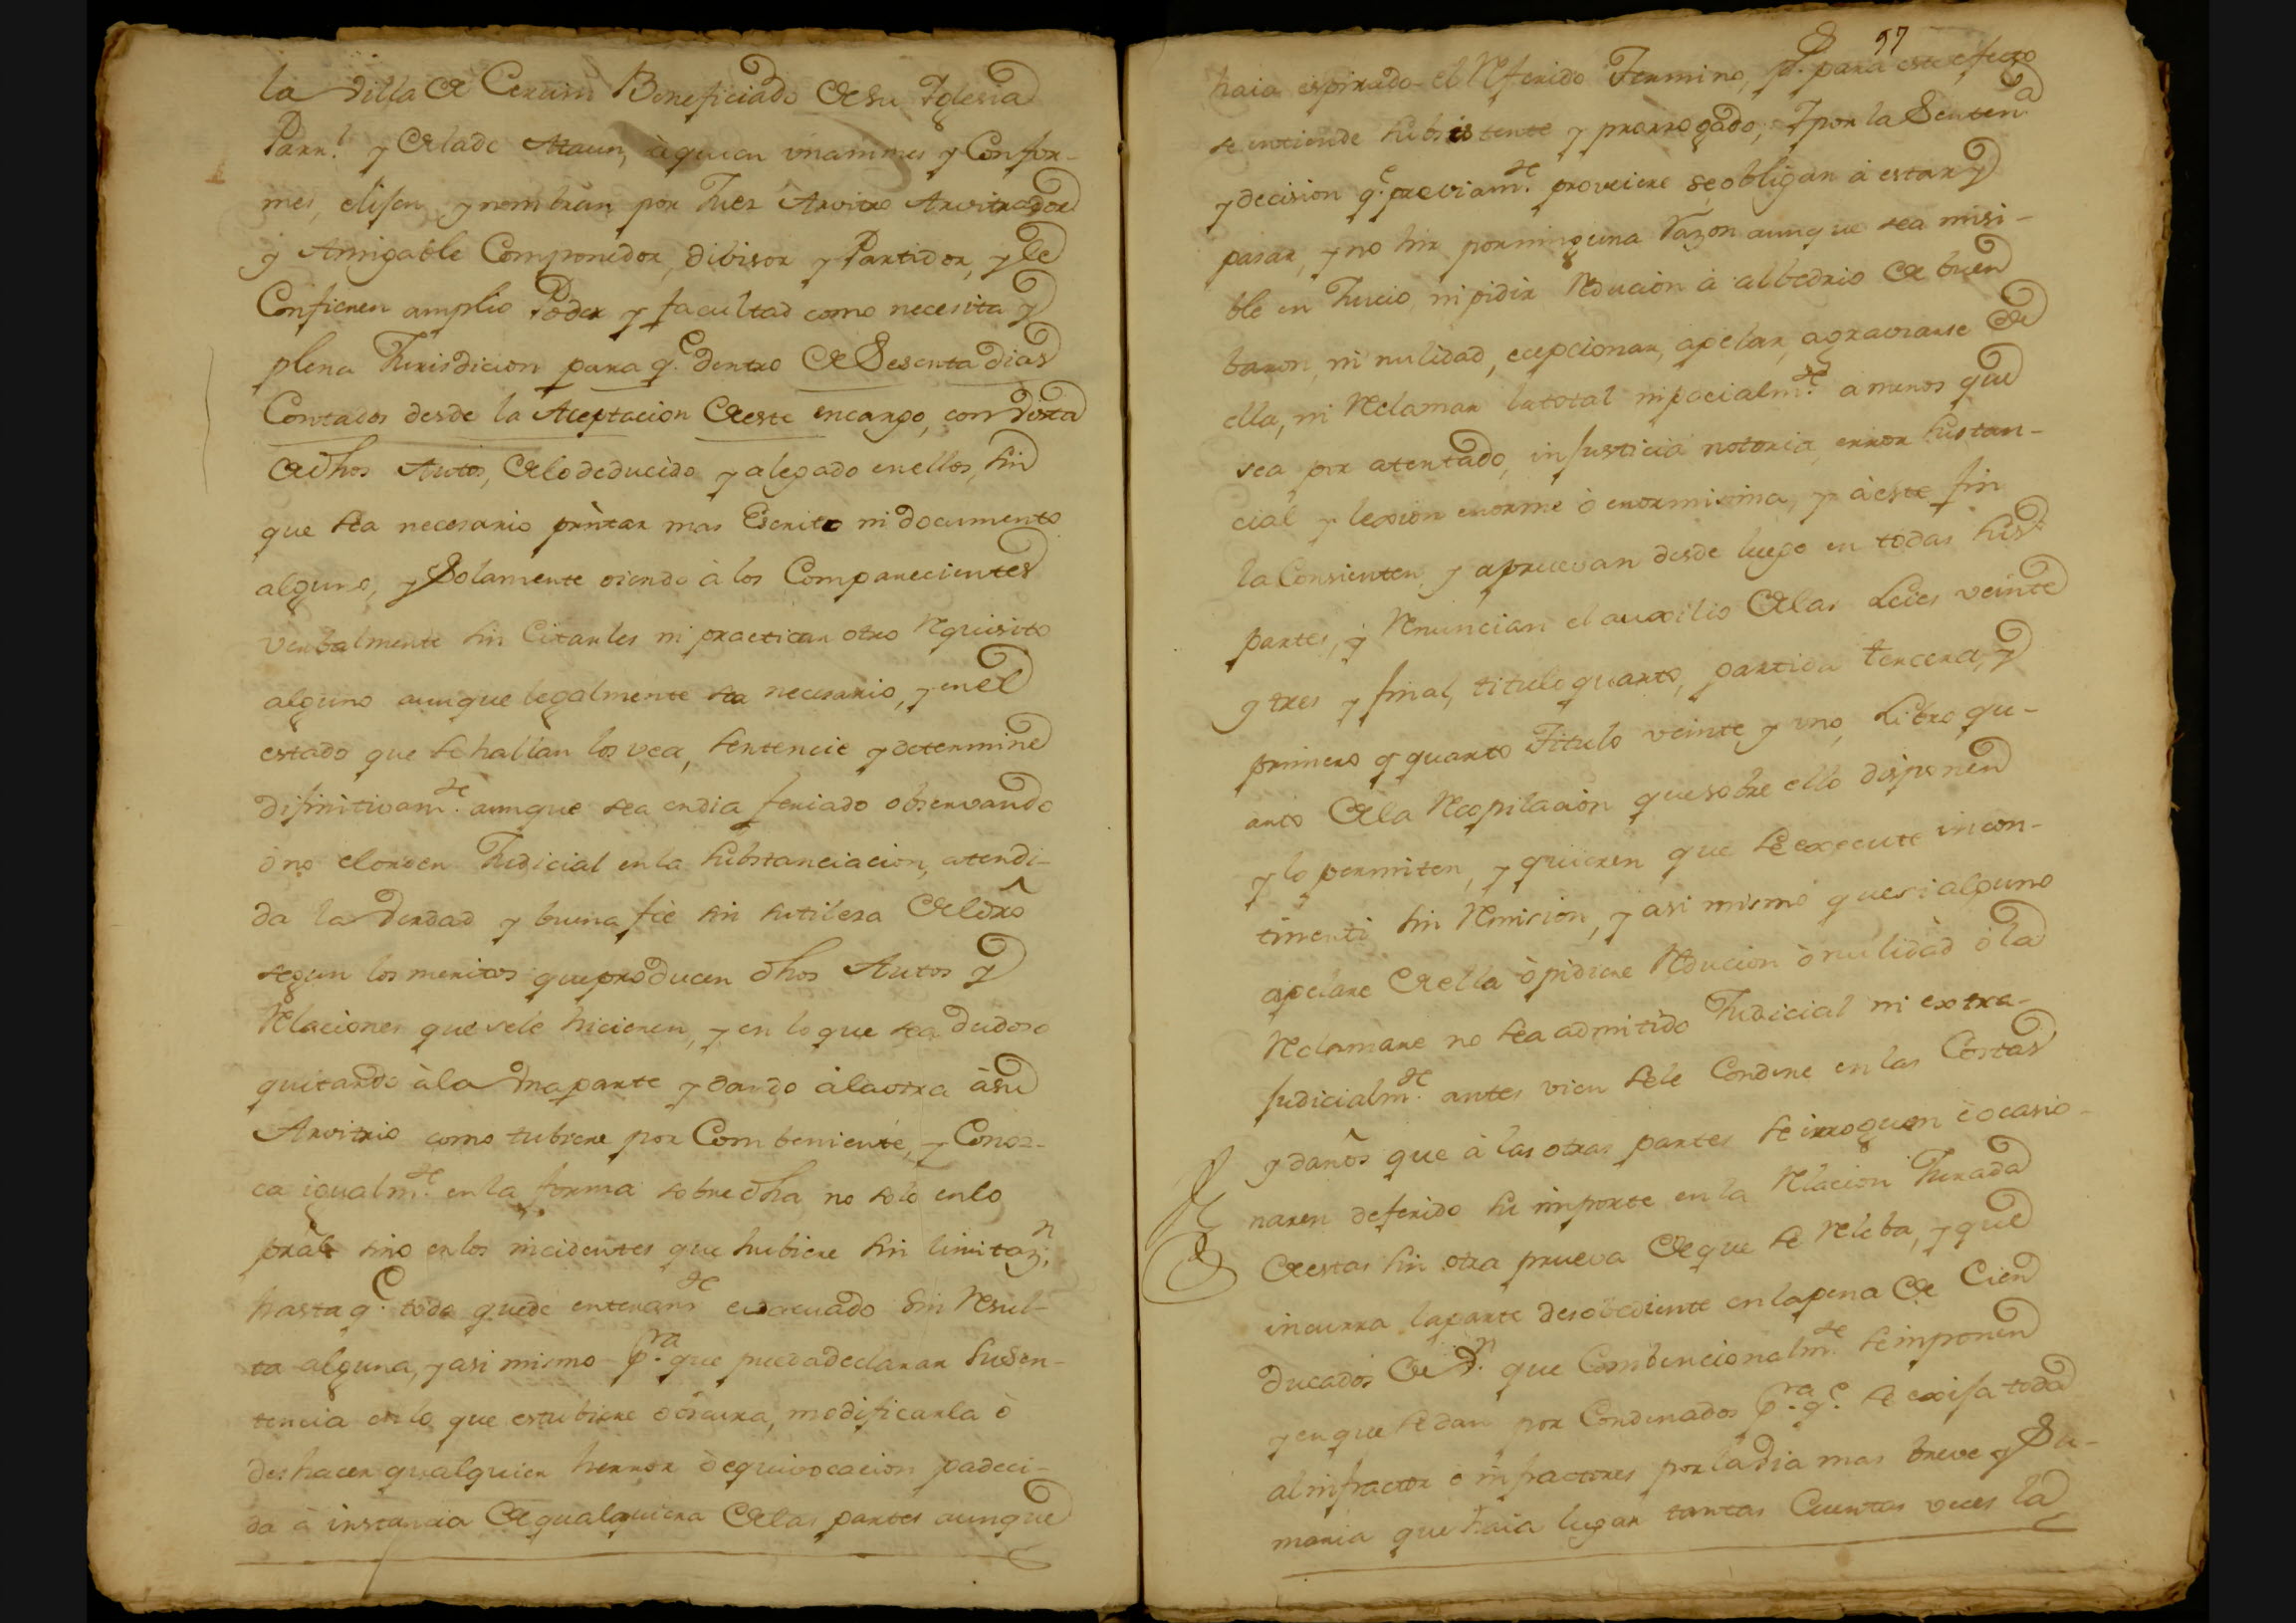 la Villa de Cerain Beneficiado de su Iglesia
Parr.l y de la de Ataun, à quien vnanimes y Confor-
mes, elijen y nombran por Juez Arvitro Arvitrador
y Amigable Componedor, dibisor y Partidor, y le
Confieren amplio Poder y facultad como necesita y
plena Jurisdicion para q.e dentro de Sesenta dias
Contados desde la Aceptacion de este encargo, con vista
de dhos Autos, de lo deducido y alegado en ellos, sin
que sea necesario prntar mas Escrito ni documento
alguno, y Solamente oiendo à los Comparecientes
verbalmente sin Citarles ni practicar otro requisito
alguno aunque legalmente sea necesario, y en el
estado que se hallan los vea, sentencie y determine
difinitivam.te aunque sea en dia feriado observando
ò no el orden Judicial en la substanciacion, atendi-
da la Verdad y buena fée sin sutileza del dro
segun los meritos que producen dhos Autos y
relaciones que se le hicieren, y en lo que sea dudoso
quitando à la Vna parte y dando à la otra à su
Arvitrio como tubiere por Combeniente, y Conoz-
ca igualm.te en la forma sobre dha no solo en lo
pral sino en los incidentes que hubiere sin limitaz.n
hasta q.e todo quede enteram.te evacuado sin resul-
ta alguna, y asi mismo p.ra que pueda declarar su Sen-
tencia en lo que estubiere oscura, modificarla ò
deshacer qualquier herror ò equivocacion padeci-
da à instancia de qualquiera de las partes aunque
97
haia espirado el referido Termino, p.s para este efecto
se entiende subsistente y prorrogado; Y por la Senten.a
y decision q.e previam.te proveiere se obligan à estar y
pasar, y no hir por ninguna razon aunque sea misi-
ble en Juicio, ni pidir reducion à albedrio de buen
baron, ni nulidad, ecepcionar, apelar, agraviarse de
ella, ni reclamar la total ni pacialm.te a menos que
sea por atentado, injusticia notoria, error sustan-
cial y lexion enorme ò enormisima, y à este fin
la Consienten y apruevan desde luego en todas sus
partes, y renuncian el auxilio de las Leies veinte
y tres y final, titulo quarto, partida tercera, y
primero y quarto Titulo veinte y vno, Libro qu-
arto de la recopilacion que sobre ello disponen
y lo permiten, y quieren que se execute incon-
tinenti sin remision, y asi mismo que si alguno
apelare de ella ò pidiere reducion ò nulidad ò la
reclamare no sea admitido Judicial ni extra-
judicialm.te antes vien se le Condene en las Costas
y daños que à las otras partes se irroguen è ocasio-
naren deferido su importe en la relacion Jurada
de estas sin otra prueva de que se releba, y que
incurra la parte desobediente en la pena de Cien
ducados de V.n que Combencionalm.te se imponen
y en que se dan por Condenados p.ra q.e se exija toda
al infractor ò infractores por la via mas breve y Su-
maria que haia lugar tantas Cuentas veces la